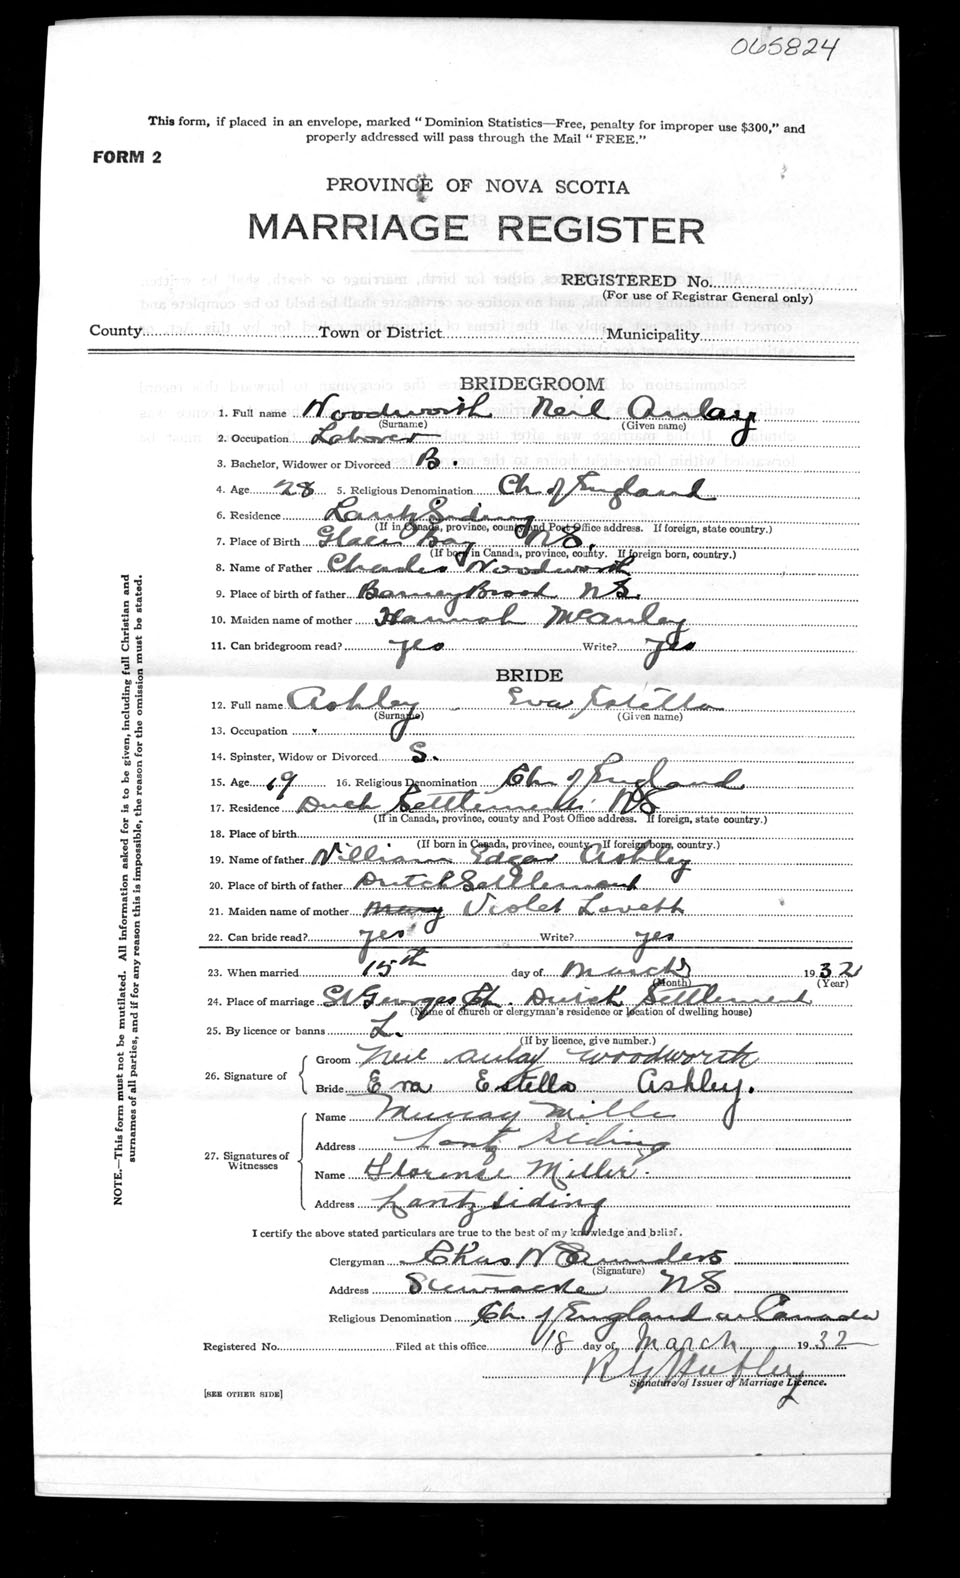 065824
This form, if placed in an envelope, marked "Dominion Statistics—Free, penalty for improper use $300," and
properly addressed will pass through the Mail "FREE."
FORM 2
PROVINCE OF NOVA SCOTIA
MARRIAGE REGISTER
REGISTERED No.
(For use of Registrar General only)
County Town or District Municipality
BRIDEGROOM
1. Full name Woodworth Neil Aulay
(Surname) (Given name)
2. Occupation Laborer
3. Bachelor, Widower or Divorced B.
4. Age 28 5. Religious Denomination Ch of England
6. Residence Lantz Siding
(If in Canada, province, county and Post Office address. If foreign, state country.)
7. Place of Birth Glace Bay NS.
(If born in Canada, province, county. If foreign born, country.)
8. Name of Father Charles Woodworth
9. Place of birth of father Barney Brook NS.
10. Maiden name of mother Hannah McAulay
11. Can bridegroom read? yes Write? yes
BRIDE
12. Full name Ashley Eva Estella
(Surname) (Given name)
13. Occupation
14. Spinster, Widow or Divorced S.
15. Age 19 16. Religious Denomination Ch of England
17. Residence Duch Settlement NS
(If in Canada, province, county and Post Office address. If foreign, state country.)
18. Place of birth
(If born in Canada, province, county. If foreign born, country.)
19. Name of father William Edgar Ashley
20. Place of birth of father Dutch Settlement
21. Maiden name of mother Mary Violet Lovett
22. Can bride read? yes Write? yes
23. When married 15th day of March 1932
(Month) (Year)
24. Place of marriage St Georges Ch. Dutch Settlement
(Name of church or clergyman's residence or location of dwelling house)
25. By licence or banns L.
(If by licence, give number.)
26. Signature of
Groom Neil Aulay Woodworth
Bride Eva Estella Ashley.
27. Signatures of Witnesses
Name Murray Mille
Address Lantz Siding
Name Florence Miller.
Address Lantz siding
I certify the above stated particulars are true to the best of my knowledge and belief.
Clergyman Chas W Saunders
(Signature)
Address Stewiacke NS
Religious Denomination Ch. of England in Canada
Registered No. Filed at this office 18 day of March 1932
Signature of Issuer of Marriage Licence.
[SEE OTHER SIDE]
NOTE.—This form must not be mutilated. All information asked for is to be given, including full Christian and
surnames of all parties, and if for any reason this is impossible, the reason for the omission must be stated.